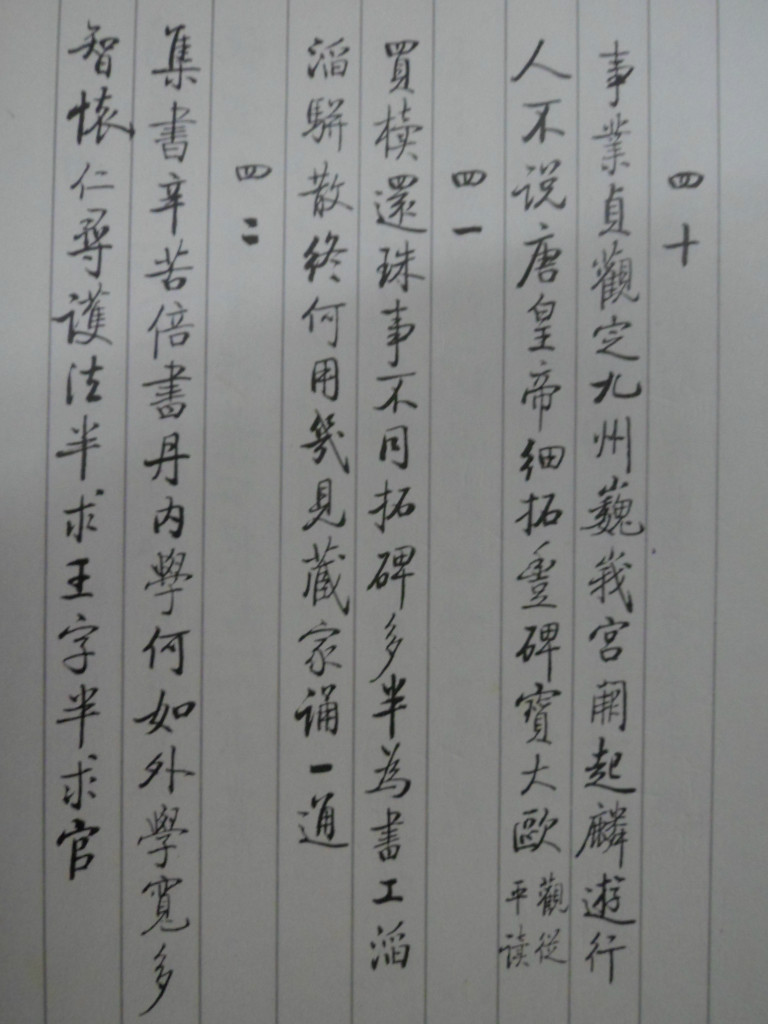 四十
事業貞觀定九州巍峩宮闕起麟遊行
人不说唐皇帝細拓豐碑寶大歐觀從平读
四一
買櫝還珠事不同拓碑多半為書工滔
滔駢散終何用幾見藏家诵一通
四二
集書辛苦倍書丹内學何如外學寬多
智懷仁尋護法半求王字半求官